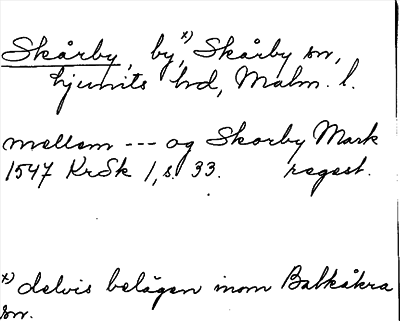 Skårby, by,x) Skårby sn,
Ljunits hd, Malm. l.
mellem --- og Skorby Mark
1547 KrSk 1, s. 33. regest.
x) delvis belägen inom Balkåkra
sn.